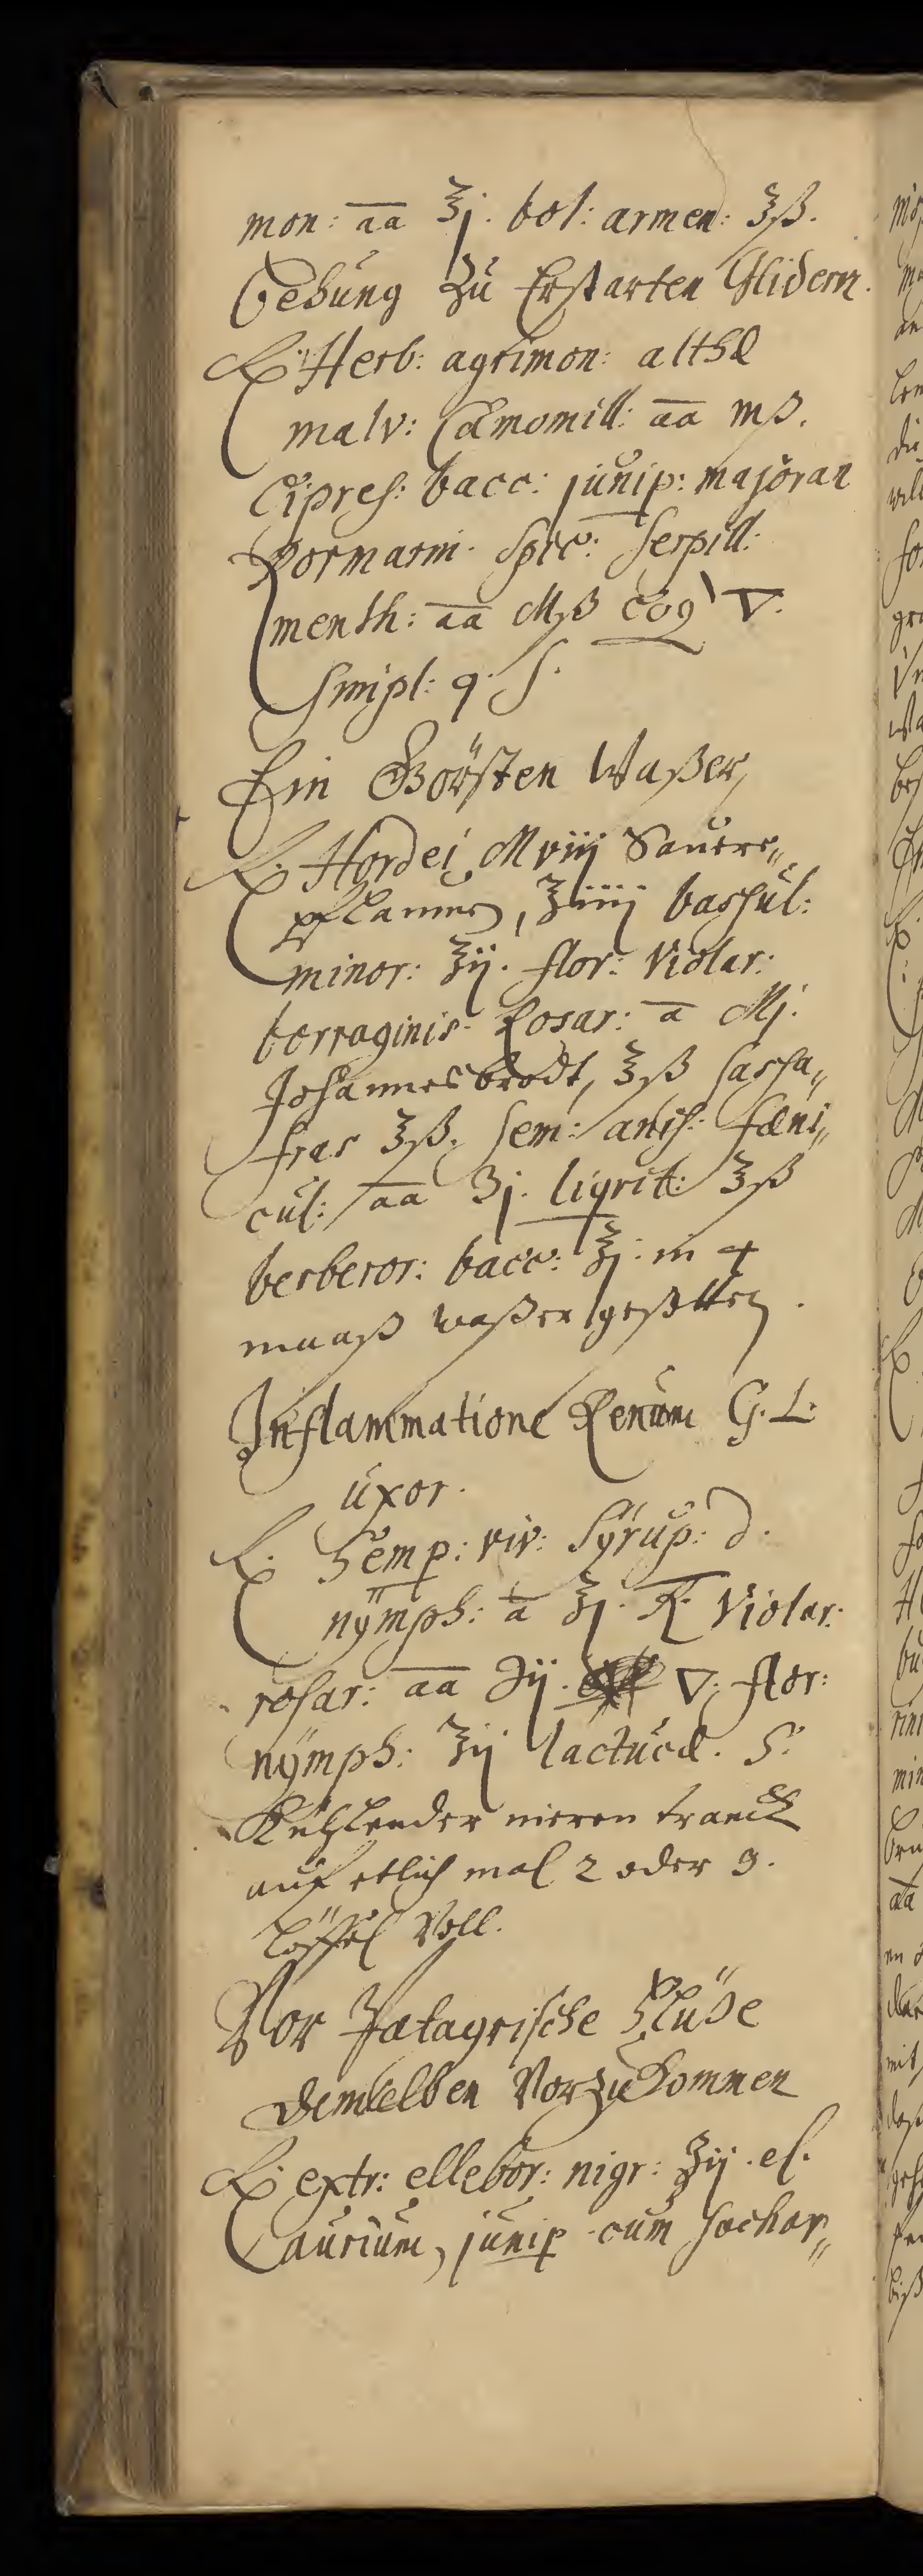 mon: aa ʒj. bol: armen: ʒß.
Behung Zu Erstarten Glidern.
℞. Herb: agrimon: althæ
malv: Camomill: aa mß.
Cipres: bacc: junip: majoran
Rormarin. Spic: Serpill:
menth: aa Mß coq ▽.
Simpl: q. s.
Ein Görsten Waßer,
℞. Hordei Mviij Saure„
pflaumen, ℥iiij bassul:
minor: ℥ij. flor: Violar:
borraginis. Rosar: a Mj.
Johannesbrodt, ℥ß sassa„
fras ℥ß. sem: anis: fæni„
cul: aa ʒj. liqrit: ℥ß
berberor: bacc: ℥j. in 4
maaß waßer gesotten.
Inflammatione Renum G. L.
uxor.
℞. Semp: viv: Syrup: d.
nymph: a ℥j. Violar:
rosar: aa ℈ij. ▽. flor:
nymph: ℥ij lactucæ. S.
Kühlender nieren tranck
auf etlich mal 2 oder 3.
Löffel Voll.
Vor Potagrische Flüße
demselben Vorzukommen
℞. extr: ellebor: nigr: ʒij. el.
aurium, junip cum sachar„